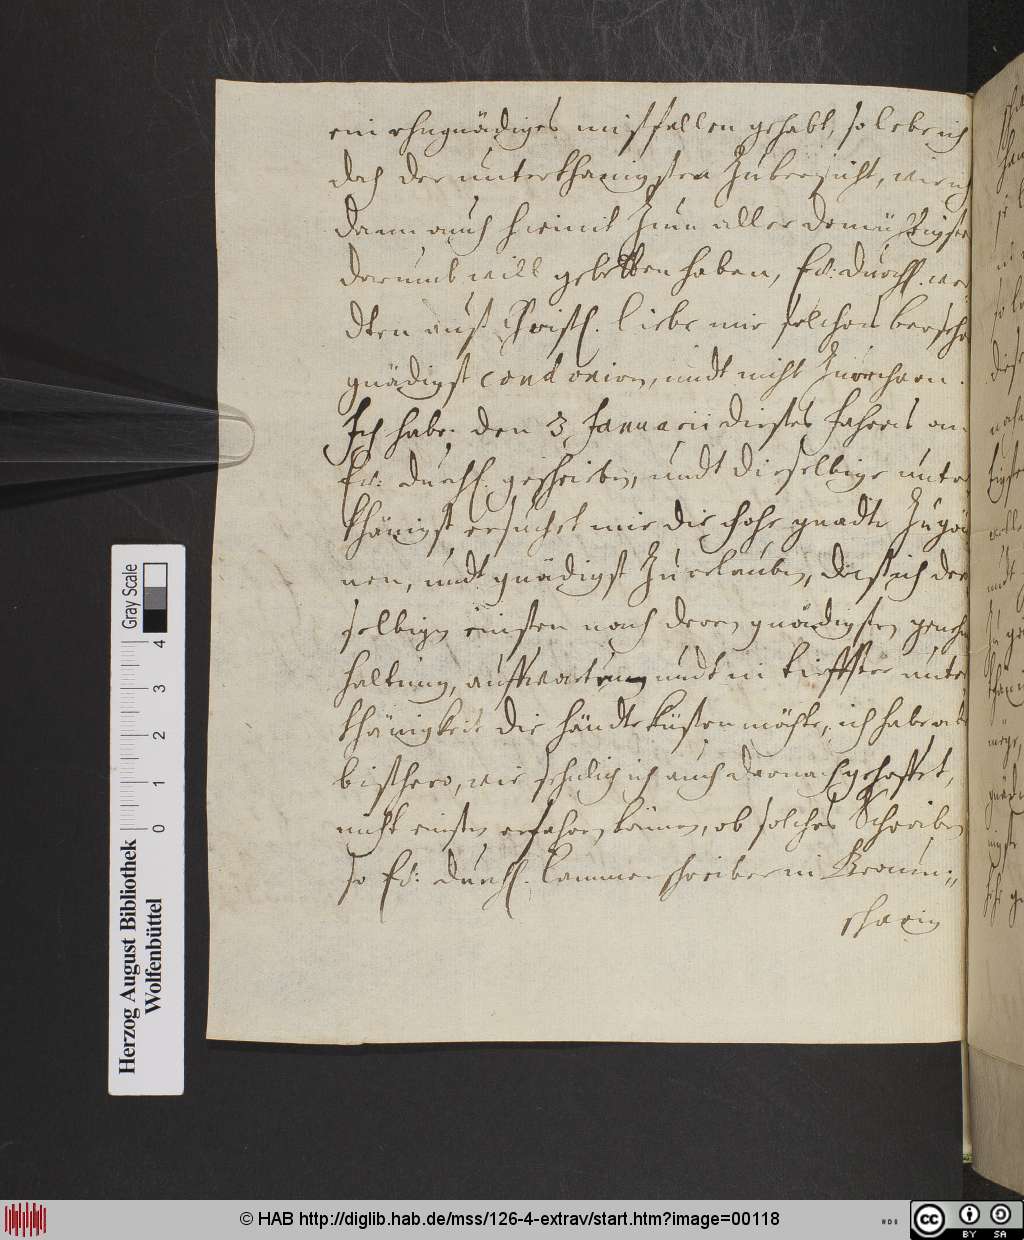 ein ohngnädiges mißfallen gehabt, so lebe ich
doch der unterthänigsten Zuversicht, wie ich
dann auch hiemit Zum aller demütigste
darumb will gebetten haben, Ed: durchl. wer
dten auß Christl. liebe mir solches versehe
gnädigst condonirn, undt nicht Zurechnen.
Ich habe den 3 Januarii dießes Jahres an
Ed: durchl. geschrieben, undt dieselbige unter
thänigst ersuchet mir die hohe gnadte Zu gön
nen, undt gnädigst Zu erlauben, daß ich der
selbigen einsten nach deren gnädigsten genehm
haltung, auffwarten undt in tieffster unter
thänigkeit die händte küßen möchte, ich habe aber
bißhero, wie sehnlich ich auch darnach gehoffet,
nicht einsten erfahren können, ob solches Schreiben
so Ed: durchl. Cammerschreiber in Braun-
schweig
Gray Scale
4
3
2
1
0
Herzog August Bibliothek
Wolfenbüttel
© HAB http://diglib.hab.de/mss/126-4-extrav/start.htm?image=00118
cc BY SA